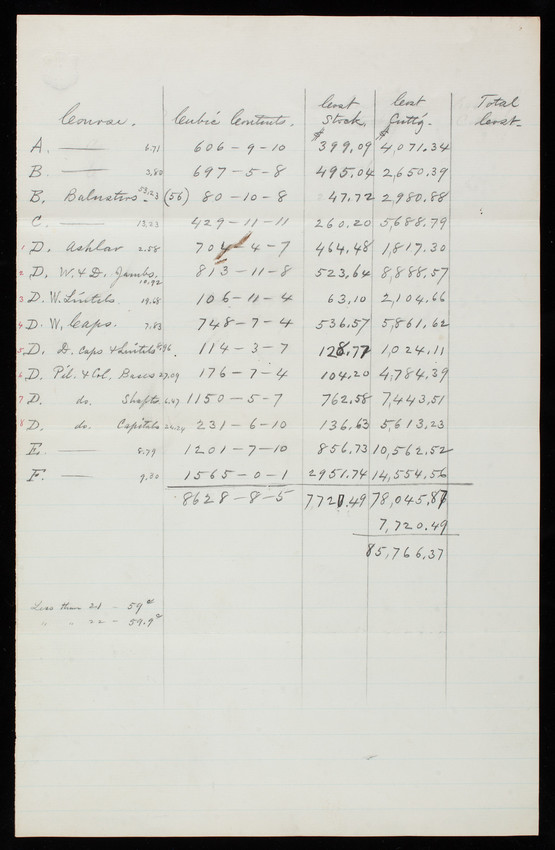 Course. Cubic Contents. Cost Stock. Cost Cutt'g. Total Cost.
$ $
A. — 6.71 606-9-10 399.09 4,071.34
B — 3.80 697-5-8 495.04 2,650.39
B. Balusters. 53.23 (56) 80-10-8 47.72 2,980.88
C. — 13.23 429-11-11 260.20 5,688.79
1 D. Ashlar 2.58 704-4-7 464.48 1,817.30
2 D. W. & D. Jambs. 10.92 813-11-8 523,64 8,888,57
3 D. W. Lintels 19.68 106-11-4 63,10 2,104,66
4 D. W. Caps. 7.83 748-7-4 536.57 5,861,62
5 D. D. Caps & Lintels 8.96 114-3-7 128.77 1,024,11
6 D. Pil. & Col. Bases 27.09 176-7-4 104.20 4,784,39
7 D do. Shafts 6.47 1150-5-7 762,58 7,443,51
8 D. do. Capitels 24.24 231-6-10 136,63 5,613,23
E. — 8.79 1201-7-10 856,73 10,562,52
F. — 9.30 1565-0-1 2951.74 14,554,56
8628-8-5 7,720.49 78,045,87
7,720.49
85,766,37
Less than 21 - 59¢
" " 22 - 59.9¢